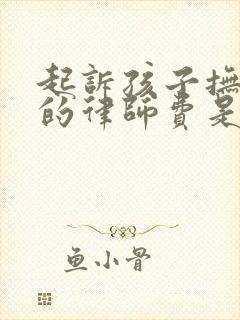 起訴孩子撫
的律師費是
鱼小骨